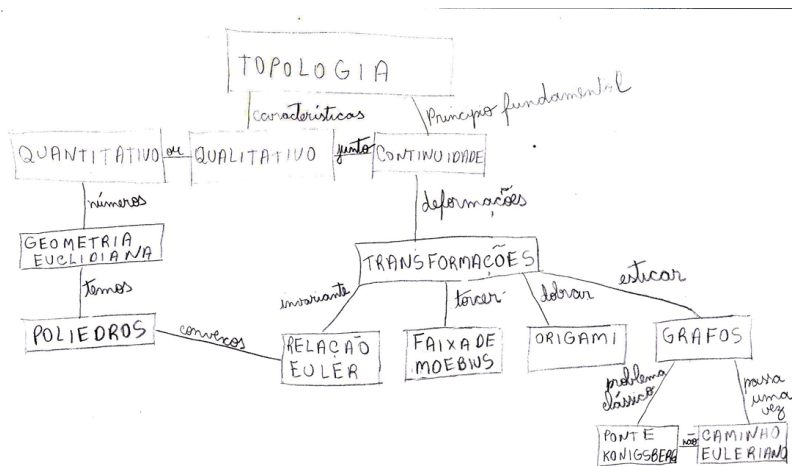 TOPOLOGIA
características
Principio fundamental
QUANTITATIVO
ou
QUALITATIVO
junto
CONTINUIDADE
números
deformações
GEOMETRIA
EUCLIDIANA
TRANSFORMAÇÕES
temos
invariante
torcer
dobrar
esticar
POLIEDROS
convexos
RELAÇÃO
EULER
FAIXA DE
MOEBIUS
ORIGAMI
GRAFOS
problema
clássico
passa
uma
vez
PONTE
KONIGSBERG
não
CAMINHO
EULERIANO